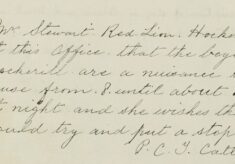 Mr Stewart. Red Lion. Hocke
t this Office. that the boys
ockerill are a nuisance
use from 8. until about
t night and she wishes th
ould try and put a stop
P.C. J. Catt